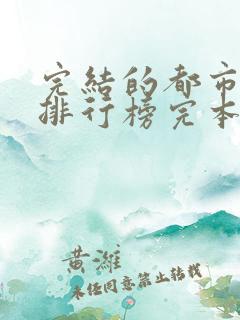 完結的都市
排行榜完本
黄濰
未经同意禁止转载